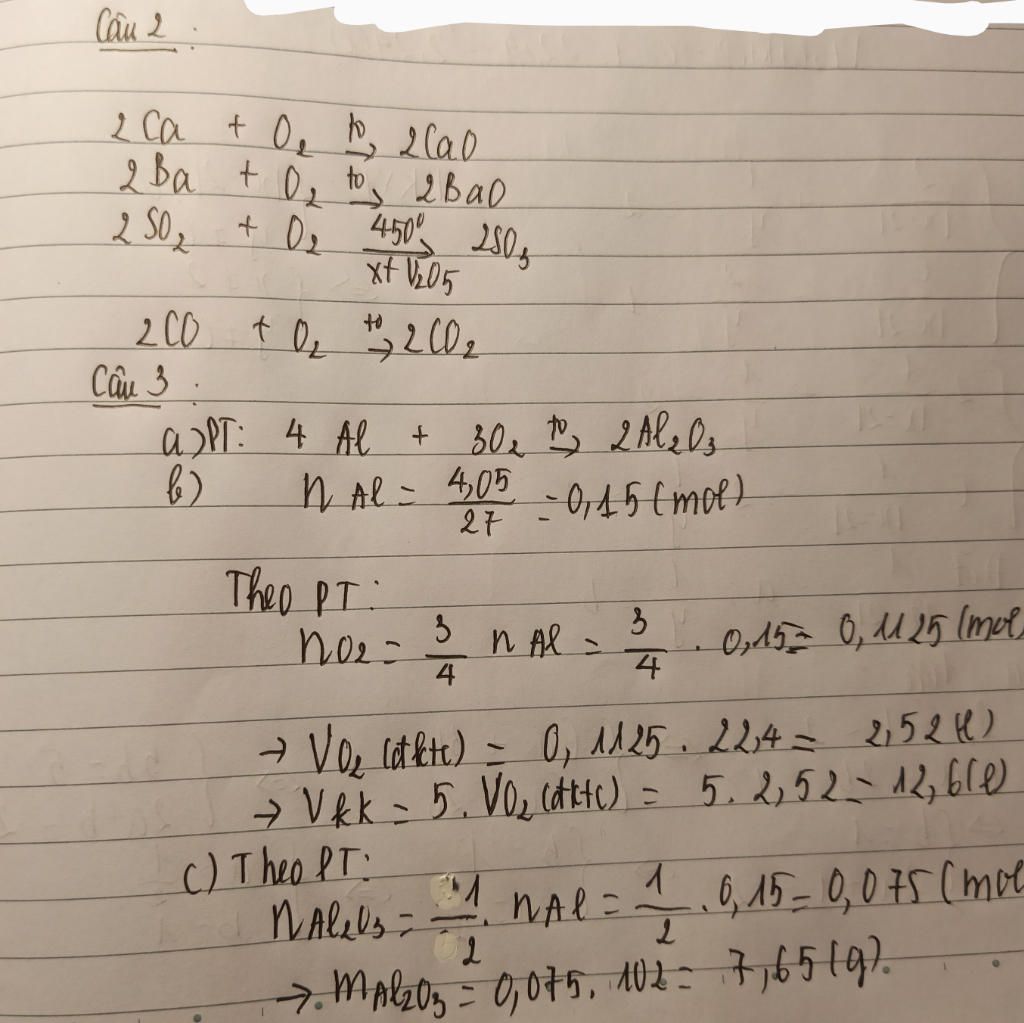 Câu 2 :
2Ca + O₂ →(t⁰) 2CaO
2Ba + O₂ →(t⁰) 2BaO
2SO₂ + O₂ →(450⁰, xt V₂O₅) 2SO₃
2CO + O₂ →(t⁰) 2CO₂
Câu 3 :
a) PT: 4 Al + 3O₂ →(t⁰) 2Al₂O₃
b) n Al = 4,05/27 = 0,15 (mol)
Theo PT:
nO₂ = 3/4 n Al = 3/4 . 0,15 = 0,1125 (mol)
→ VO₂ (đktc) = 0,1125 . 22,4 = 2,52 (l)
→ Vkk = 5. VO₂ (đktc) = 5. 2,52 = 12,6 (l)
c) Theo PT:
nAl₂O₃ = 1/2 . nAl = 1/2 . 0,15 = 0,075 (mol
→ mAl₂O₃ = 0,075. 102 = 7,65 (g).